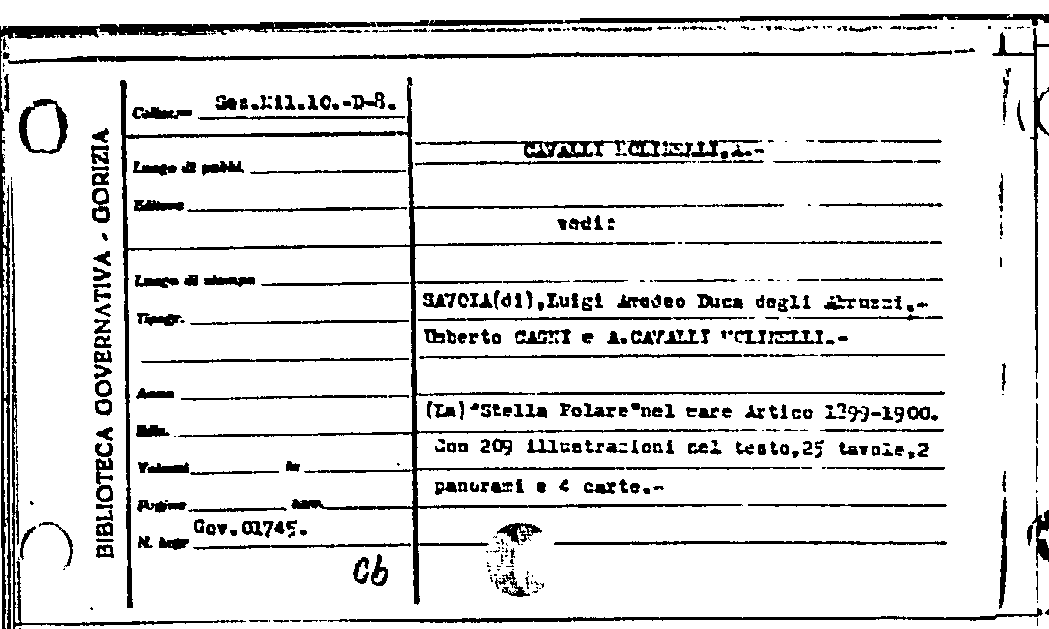 BIBLIOTECA GOVERNATIVA - GORIZIA
Colloc.— Sez.Mil.10.-D-8.
Luogo di pubbl.
Editore
Luogo di stampa
Tipogr.
Anno
Ediz.
Volumi in
Pagine num.
N. ingr. Gov.01745.
Cb
CAVALLI MOLINELLI,A.-
vedi:
SAVOIA(di),Luigi Amedeo Duca degli Abruzzi.-
Umberto CAGNI e A.CAVALLI MOLINELLI.-
(La)"Stella Polare"nel mare Artico 1899-1900.
Con 209 illustrazioni nel testo,25 tavole,2
panorami e 4 carte.-